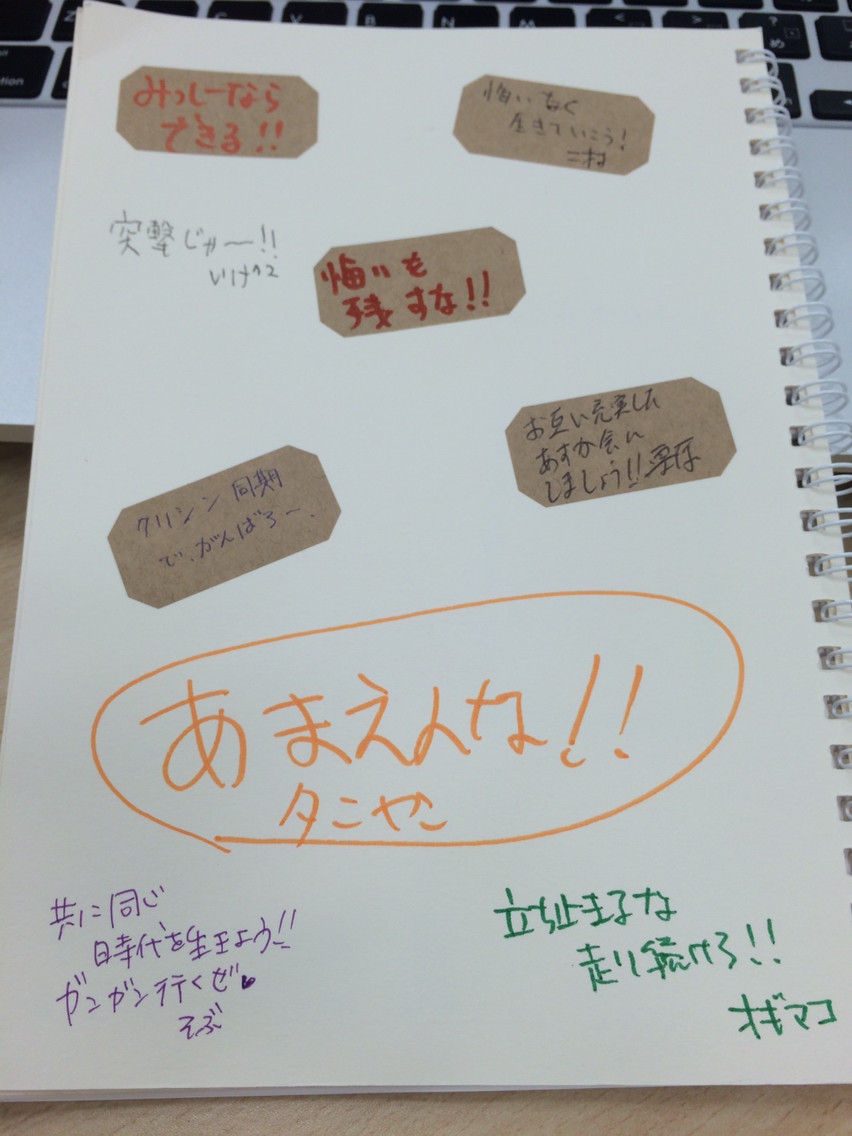 みっしーなら
できる!!
悔いなく
生きていこう!
二村
突撃じゃ〜!!
悔いも
残すな!!
お互い充実した
あすか会に
しましょう!!
クリシン同期
で、がんばろー、
あまえんな!!
タニやん
共に同じ
時代を生きよう!!
ガンガン行くぜ
そぶ
立ち止まるな
走り続けろ!!
オギマコ